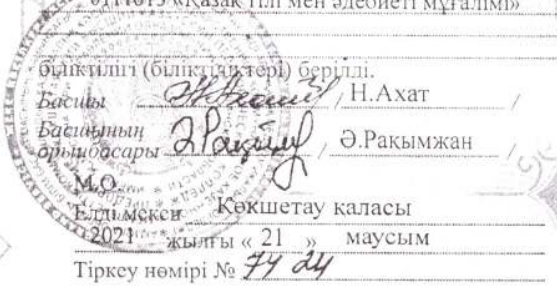 0111013 «Қазақ тілі мен әдебиеті мұғалімі»
біліктілігі (біліктіліктері) берілді.
Басшы / Н.Ахат /
Басшының
орынбасары / Ә.Рақымжан /
М.О.
Елді мекен Көкшетау қаласы
2021 жылғы « 21 » маусым
Тіркеу нөмірі №